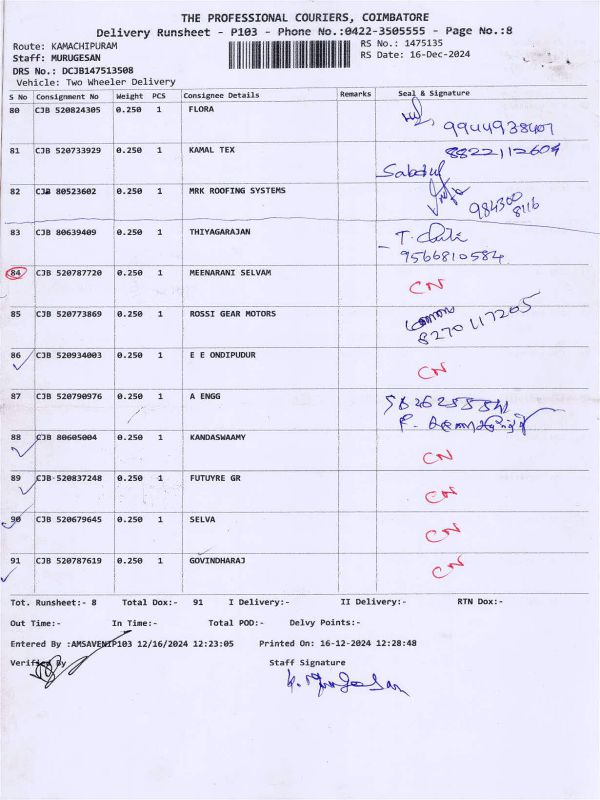 THE PROFESSIONAL COURIERS, COIMBATORE
Delivery Runsheet - P103 - Phone No.:0422-3505555 - Page No.:8
Route: KAMACHIPURAM RS No.: 1475135
Staff: MURUGESAN RS Date: 16-Dec-2024
DRS No.: DCJB147513508
Vehicle: Two Wheeler Delivery
S No Consignment No Weight PCS Consignee Details Remarks Seal & Signature
80 CJB 520824305 0.250 1 FLORA
9944938407
81 CJB 520733929 0.250 1 KAMAL TEX 8822112604
82 CJB 80523602 0.250 1 MRK ROOFING SYSTEMS
984300
8116
83 CJB 80639409 0.250 1 THIYAGARAJAN
9566810584
84 CJB 520787720 0.250 1 MEENARANI SELVAM CN
85 CJB 520773869 0.250 1 ROSSI GEAR MOTORS
8270117205
86 CJB 520934003 0.250 1 E E ONDIPUDUR CN
87 CJB 520790976 0.250 1 A ENGG
88 CJB 80605004 0.250 1 KANDASWAAMY CN
89 CJB 520837248 0.250 1 FUTUYRE GR CN
90 CJB 520679645 0.250 1 SELVA CN
91 CJB 520787619 0.250 1 GOVINDHARAJ CN
Tot. Runsheet:- 8 Total Dox:- 91 I Delivery:- II Delivery:- RTN Dox:-
Out Time:- In Time:- Total POD:- Delvy Points:-
Entered By :AMSAVENIP103 12/16/2024 12:23:05 Printed On: 16-12-2024 12:28:48
Verified By Staff Signature